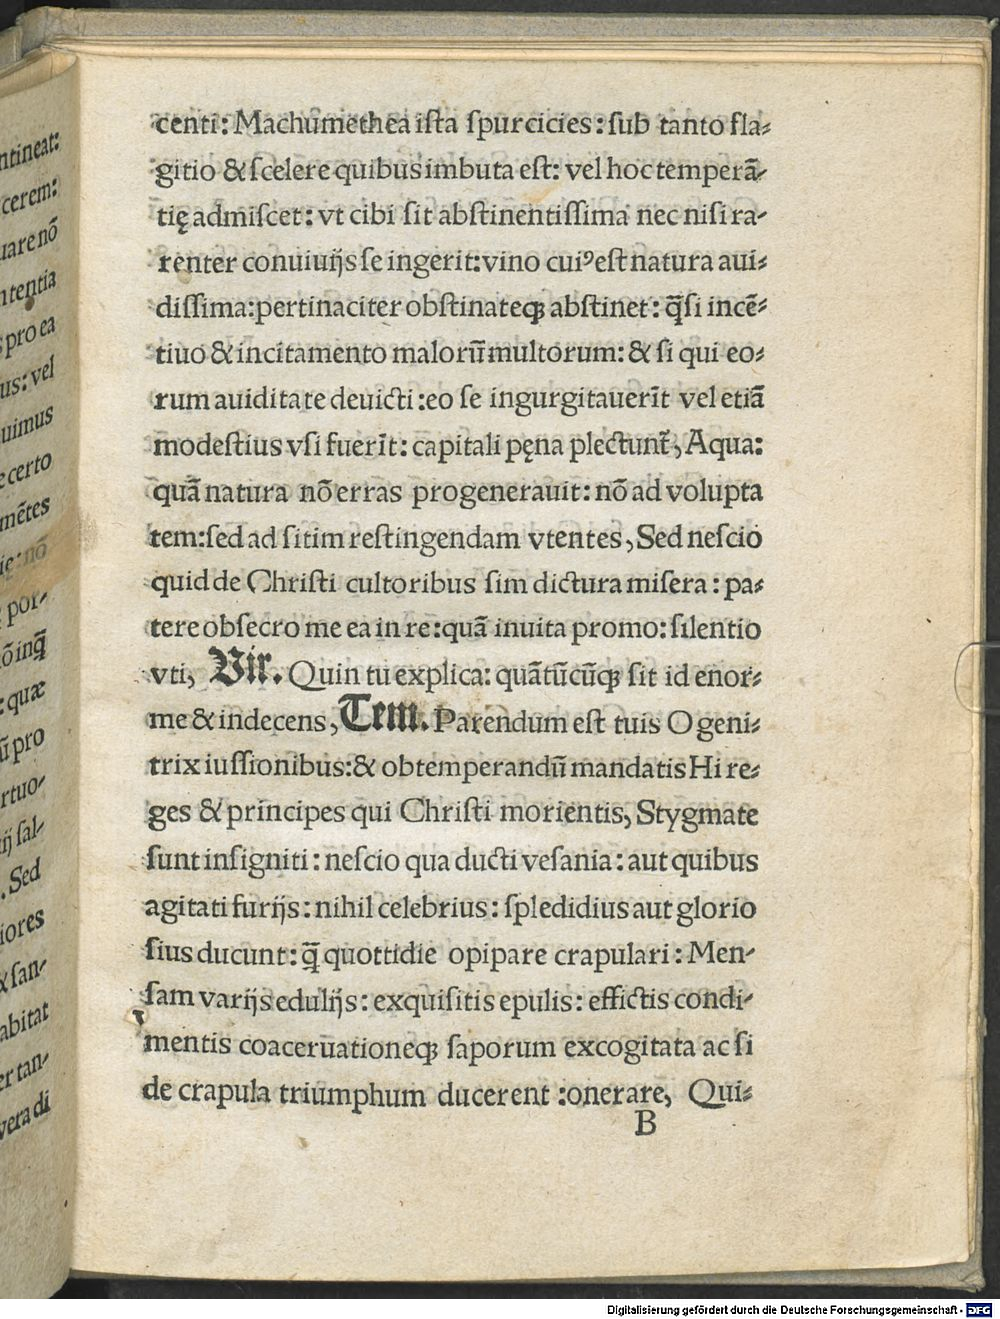 centi: Machumethea iſta ſpurcicies: ſub tanto fla⸗
gitio & ſcelere quibus imbuta eſt: vel hoc temperã⸗
tię admiſcet: vt cibi ſit abſtinentiſſima nec niſi ra⸗
renter conuiuijs ſe ingerit: vino cuiꝰ eſt natura aui⸗
diſſima: pertinaciter obſtinateqȝ abſtinet: q̃ſi incẽ⸗
tiuo & incitamento malorũ multorum: & ſi qui eo⸗
rum auiditate deuicti: eo ſe ingurgitauerĩt vel etiã
modeſtius vſi fuerĩt: capitali pęna plectunt̃, Aqua:
quã natura nõ erras progenerauit: nõ ad volupta
tem: ſed ad ſitim reſtingendam vtentes, Sed neſcio
quid de Chriſti cultoribus ſim dictura miſera: pa⸗
tere obſecro me ea in re: quã inuita promo: ſilentio
vti, Vir. Quin tu explica: quãtũcũqȝ ſit id enor⸗
me & indecens, Tem. Parendum eſt tuis O geni⸗
trix iuſſionibus: & obtemperandũ mandatis Hi re⸗
ges & principes qui Chriſti morientis, Stygmate
ſunt inſigniti: neſcio qua ducti veſania: aut quibus
agitati furijs: nihil celebrius: ſpledidius aut glorio
ſius ducunt: q̃ quottidie opipare crapulari: Men⸗
ſam varijs edulijs: exquiſitis epulis: effictis condi⸗
mentis coaceruationeqȝ ſaporum excogitata ac ſi
de crapula triumphum ducerent: onerare, Qui⸗
B
ntineat:
cerem:
uare nõ
ntentia
pro ea
us: vel
uimus
certo
mẽtes
nõ
por⸗
õ inq̃
: quæ
ũ pro
rtuo⸗
ij ſal⸗
. Sed
iores
ſan⸗
abitat
er tan⸗
vera di
Digitalisierung gefördert durch die Deutsche Forschungsgemeinschaft - DFG